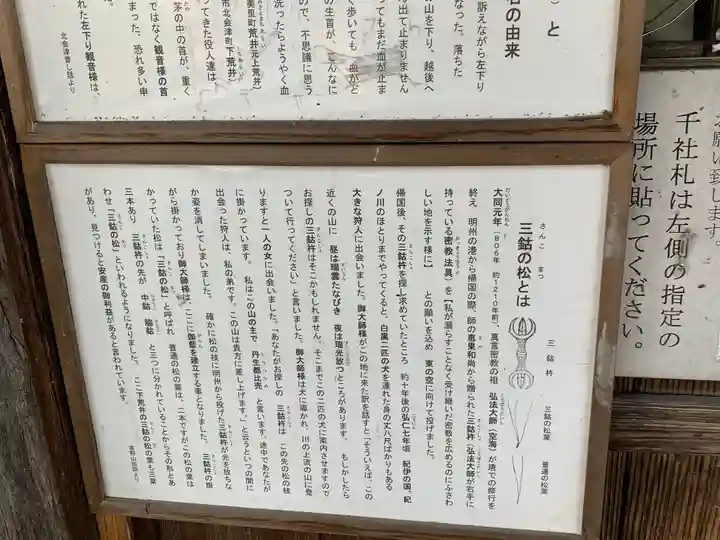 ）と
名の由来
訴えながら左下り
なった。落ちた
山を下り、越後へ
出て止まりません
ってもまだ血が止ま
く歩いても、血がど
の生首が、こんなに
ので、不思議に思う
洗ったらようやく血
美里町荒井元上荒井）
市北会津町下荒井）
ってきた役人達は
茅の中の首が、重く
ではなく観音様の首
まった、恐れ多い申
れた左下り観音様は、
北会津昔し話より
お願い致します
千社札は左側の指定の
場所に貼ってください。
三鈷の松とは
さんこ まつ
三鈷杵
三鈷の松葉
普通の松葉
大同元年（８０６年 約１２１０年前）、真言密教の祖 弘法大師（空海）が唐での修行を
終え 明州の港から帰国の際、師の恵果和尚から贈られた三鈷杵（弘法大師が右手に
持っている密教法具）を【私が漏らすことなく受け継いだ密教を広めるのにふさわ
しい地を示す様に】 との願いを込め 東の空に向けて投げました。
帰国後、その三鈷杵を探し求めていたところ 約十年後の弘仁七年頃 紀伊の国、紀
ノ川のほとりまでやってくると、白黒二匹の犬を連れた身の丈八尺ばかりもある
大きな狩人に出会いました。御大師様がこの地に来た訳を話すと「そういえば、この
近くの山に 昼は瑞雲たなびき 夜は瑞光放つところがあります。 もしかしたら
お探しの三鈷杵はそこかもしれません。そこまでこの二匹の犬に案内させますので
ついて行ってください」と言いました。御大師様は犬に導かれ、川の上流の山に登
りますと一人の女に出会いました。「あなたがお探しの 三鈷杵は この先の松の枝
に掛かっています。 私はこの山の主で 丹生都比売 と言います。途中であなたが
出会った狩人は、私の弟です。この山は貴方に差し上げます。」と云うといつの間に
か姿を消してしまいました。 確かに松の枝に明州から投げた三鈷杵が光を放ちな
がら掛かっており御大師様は、ここに伽藍を建立する事となりました。 三鈷杵の掛
かっていた松は「三鈷の松」と呼ばれ 普通の松の葉は、二本ですがこの松の葉は
三本あり 三鈷杵の先が 中鈷 脇鈷 と三つに分かれていることからその形とあ
わせ「三鈷の松」といわれるようになりました。 ここ下荒井の三鈷の松の葉も三葉
があり、見つけると安産の御利益があると言われています。
高野山伝説より